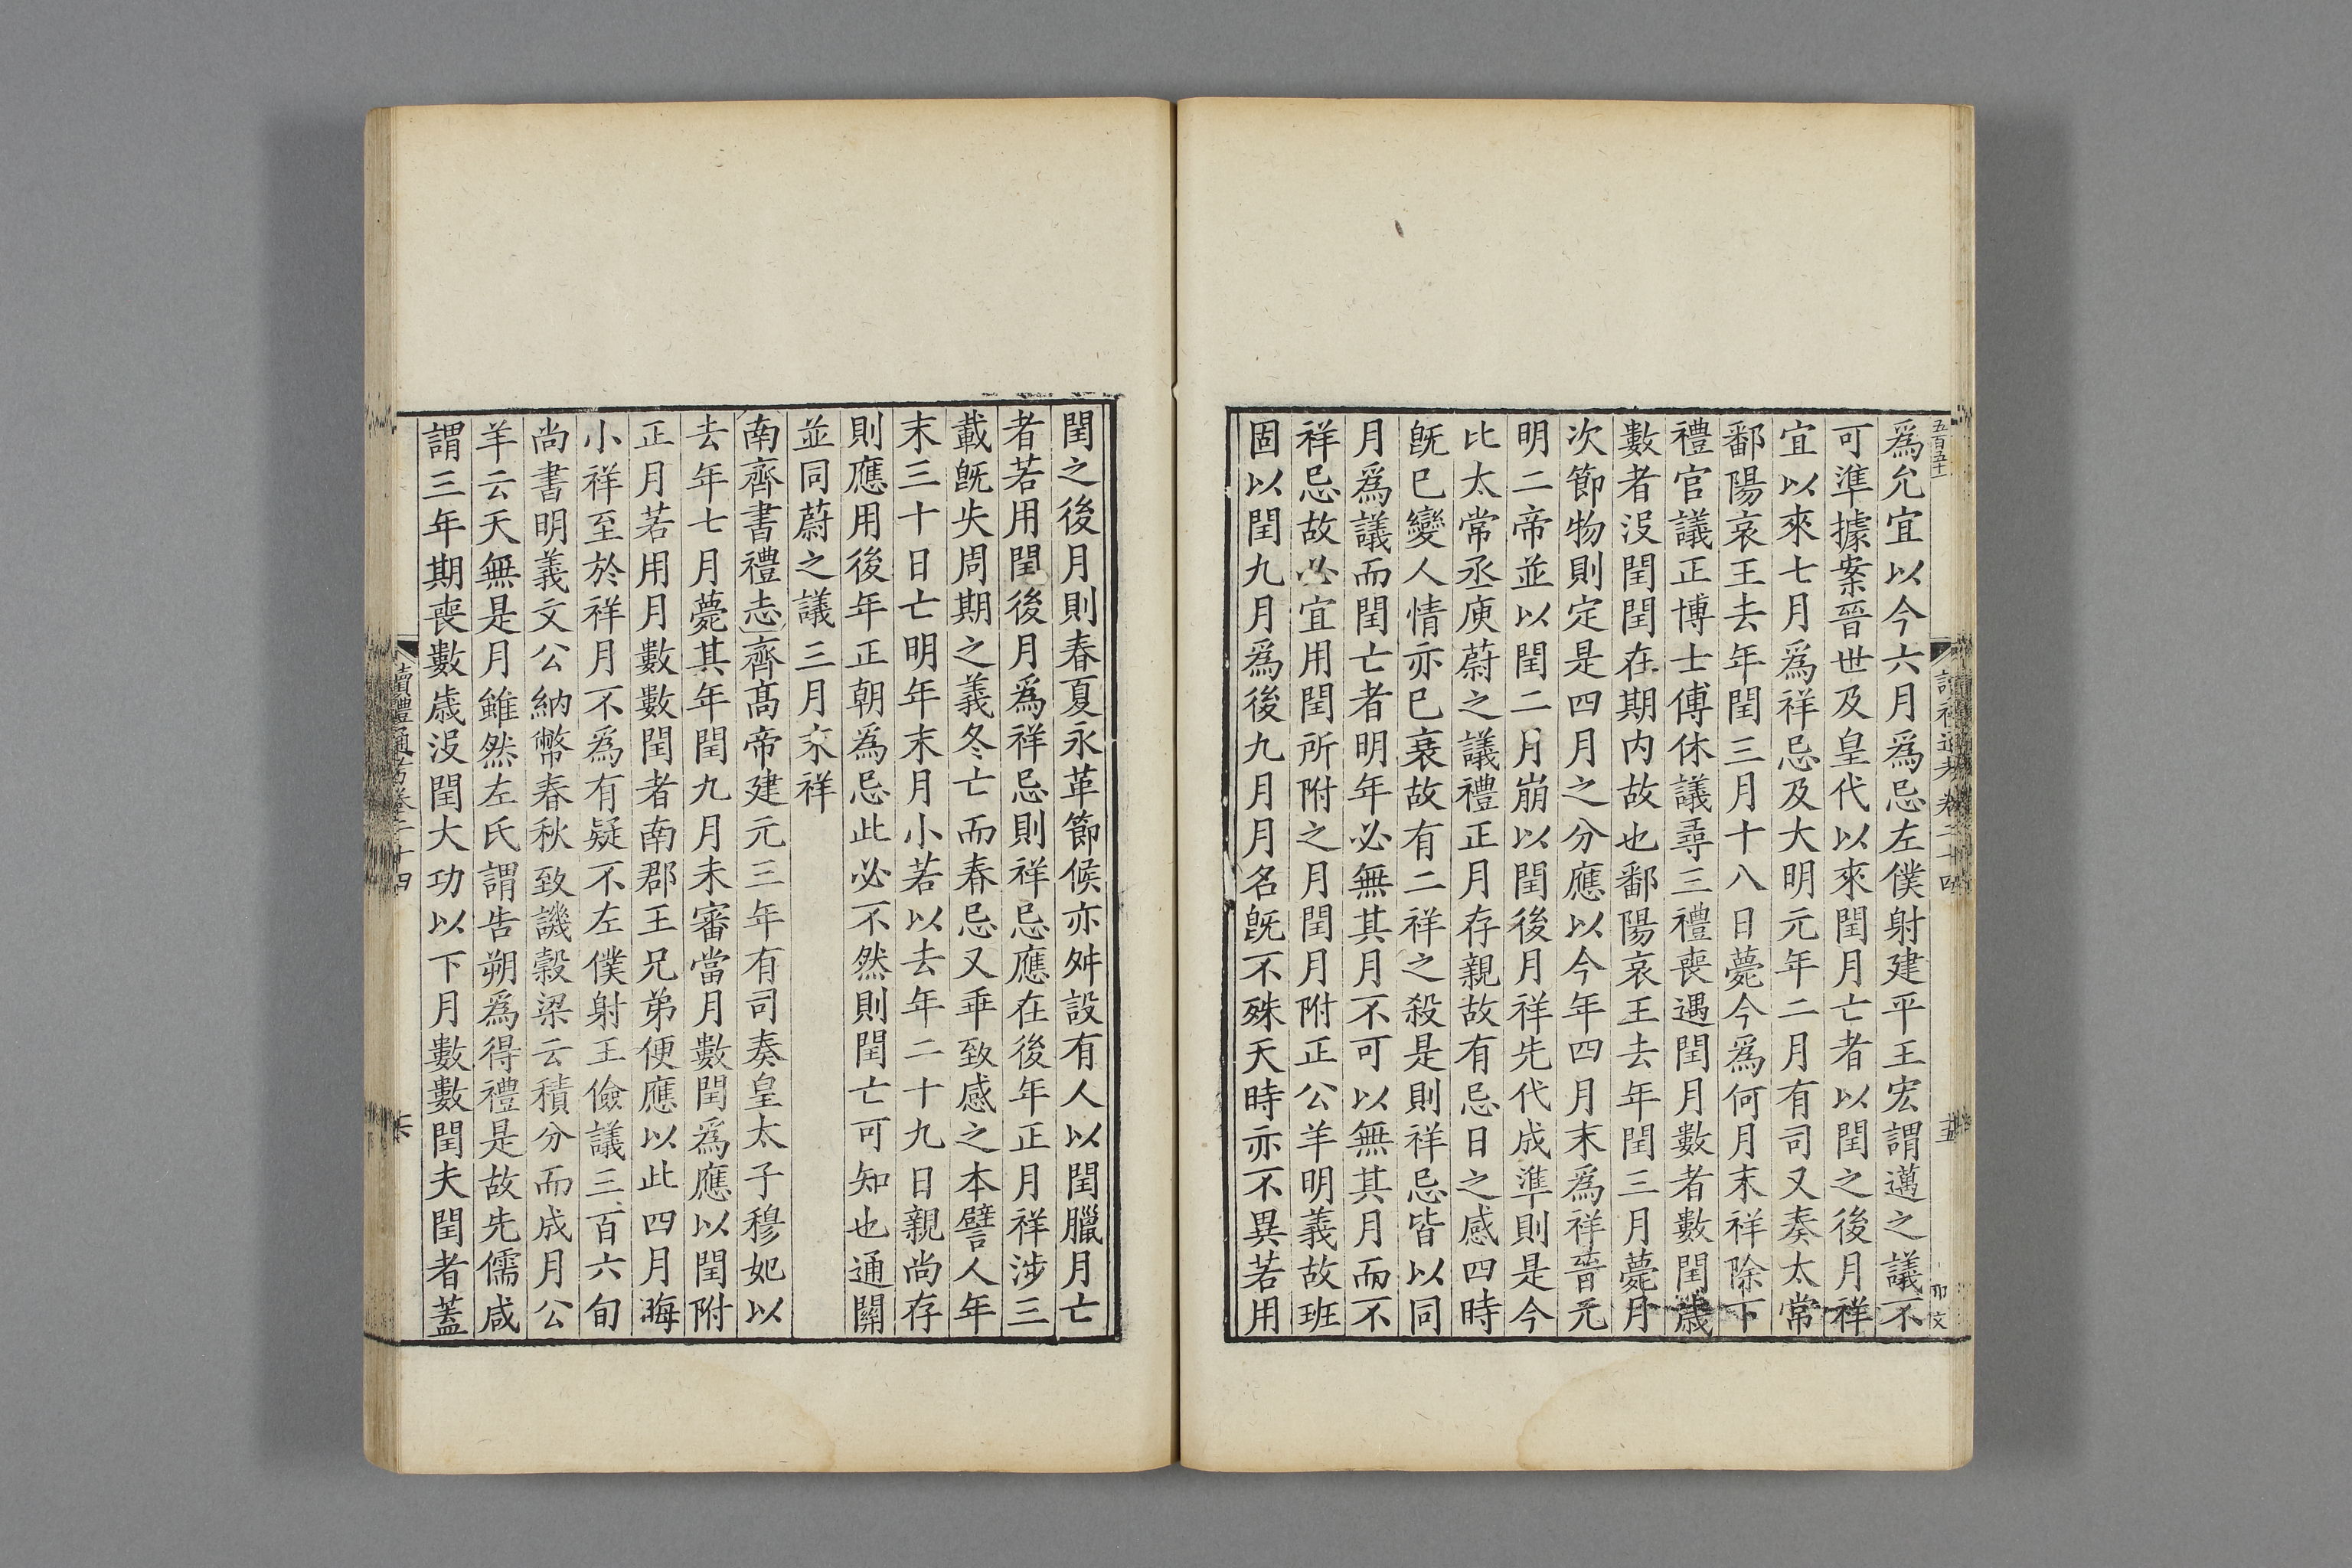 五百五十
讀禮通考卷二十四
為允宜以今六月為忌左僕射建平王宏謂邁之議不
可準據案晉世及皇代以來閏月亡者以閏之後月祥
宜以來七月為祥忌及大明元年二月有司又奏太常
鄱陽哀王去年閏三月十八日薨今為何月末祥除下
禮官議正博士傅休議尋三禮喪遇閏月數者數閏歲
數者沒閏閏在期内故也鄱陽哀王去年閏三月薨月
次節物則定是四月之分應以今年四月末為祥晉元
明二帝並以閏二月崩以閏後月祥先代成準則是今
比太常丞庾蔚之議禮正月存親故有忌日之感四時
旣已變人情亦已衰故有二祥之殺是則祥忌皆以同
月為議而閏亡者明年必無其月不可以無其月而不
祥忌故必宜用閏所附之月閏月附正公羊明義故班
固以閏九月為後九月月名旣不殊天時亦不異若用
閏之後月則春夏永革節候亦舛設有人以閏臘月亡
者若用閏後月為祥忌則祥忌應在後年正月祥涉三
載旣失周期之義冬亡而春忌又乖致感之本譬人年
末三十日亡明年末月小若以去年二十九日親尚存
則應用後年正朝為忌此必不然則閏亡可知也通關
並同蔚之議三月末祥
南齊書禮志齊髙帝建元三年有司奏皇太子穆妃以
去年七月薨其年閏九月未審當月數閏為應以閏附
正月若用月數數閏者南郡王兄弟便應以此四月晦
小祥至於祥月不為有疑不左僕射王儉議三百六旬
尚書明義文公納幣春秋致譏穀梁云積分而成月公
羊云天無是月雖然左氏謂告朔為得禮是故先儒咸
謂三年期喪數歲沒閏大功以下月數數閏夫閏者蓋
讀禮通考卷二十四